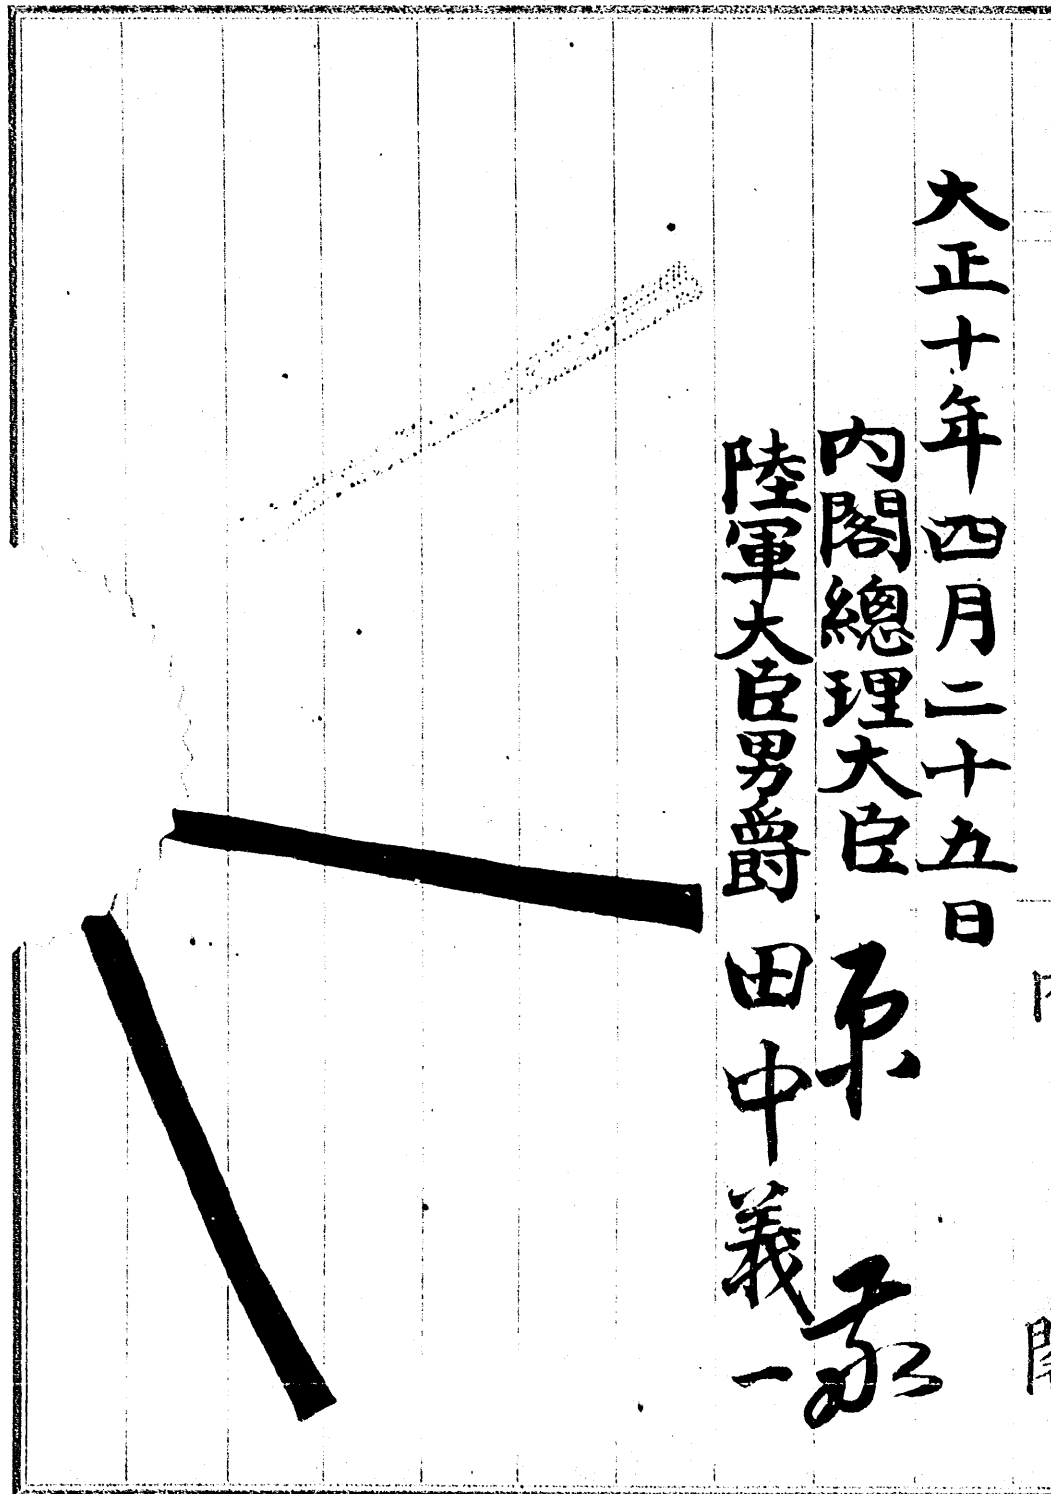 大正十年四月二十五日
内閣總理大臣 原 敬
陸軍大臣男爵 田中義一